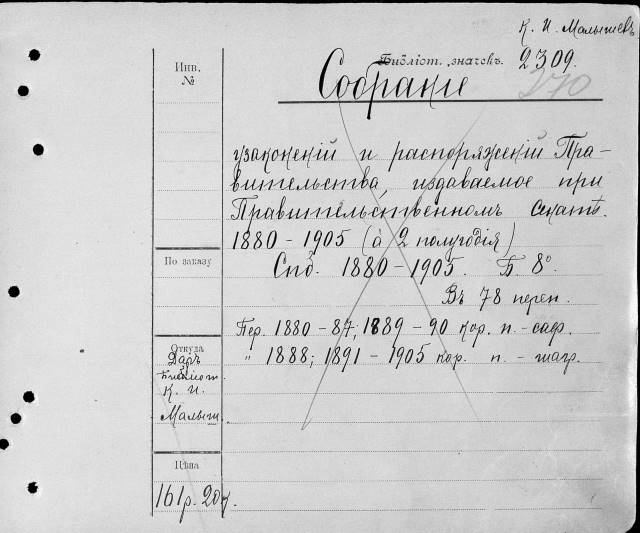 К. И. Малышевъ
Библіот. значекъ. 2309.
270
Инв.
№
Собраніе
узаконеній и распоряженій Пра-
вительства, издаваемое при
Правительственномъ Сенатѣ.
1880 - 1905 (à 2 полугодія)
По заказу
Спб. 1880 - 1905. Б. 8°.
Въ 78 переп.
Пер. 1880 - 87; 1889 - 90 кор. п. - саф.
" 1888; 1891 - 1905 кор. п. - шагр.
Откуда
Даръ
Библіот.
К. И.
Малыш.
Цѣна
161р. 20к.